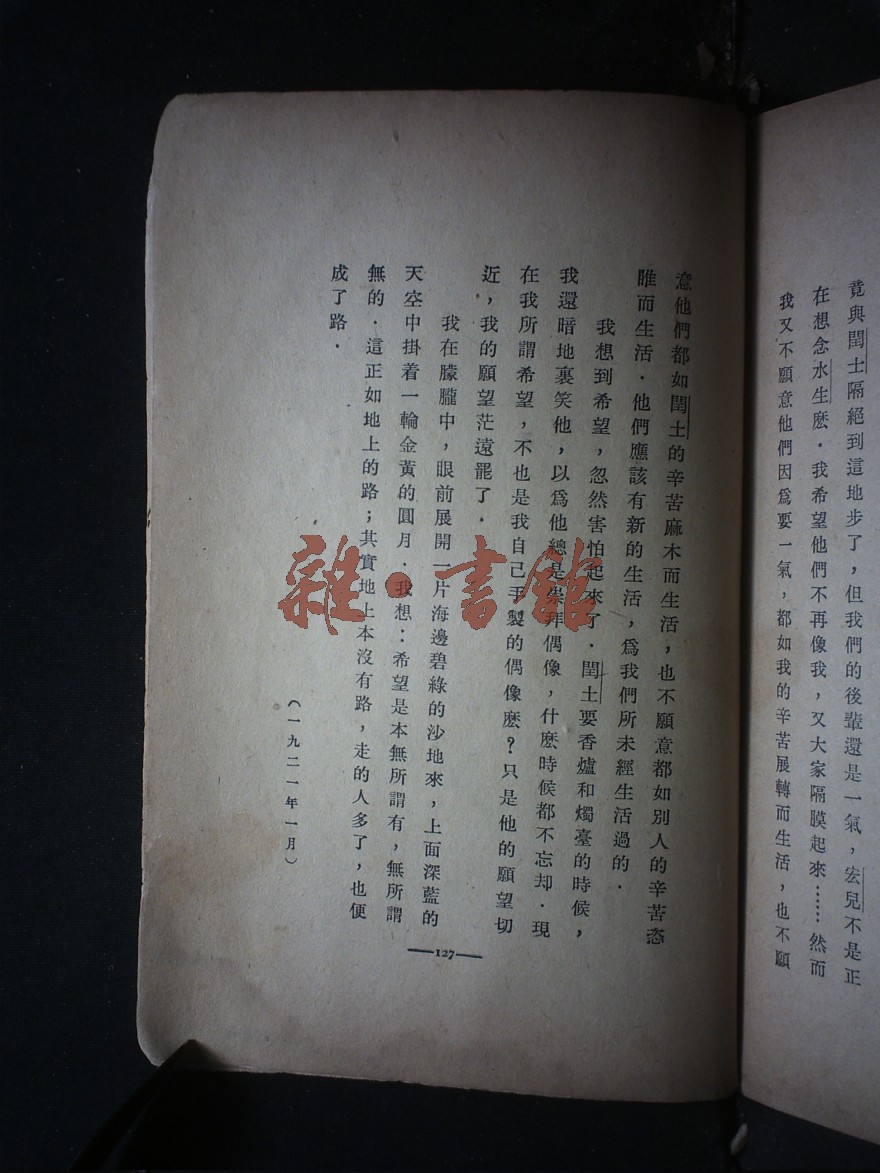 竟與閏土隔絕到這地步了，但我們的後輩還是一氣，宏兒不是正
在想念水生麽．我希望他們不再像我，又大家隔膜起來……然而
我又不願意他們因爲要一氣，都如我的辛苦展轉而生活，也不願
意他們都如閏土的辛苦麻木而生活，也不願意都如別人的辛苦恣
睢而生活．他們應該有新的生活，爲我們所未經生活過的．
我想到希望，忽然害怕起來了．閏土要香爐和燭臺的時候，
我還暗地裏笑他，以爲他總是崇拜偶像，什麽時候都不忘却．現
在我所謂希望，不也是我自己手製的偶像麽？只是他的願望切
近，我的願望茫遠罷了．
我在朦朧中，眼前展開一片海邊碧綠的沙地來，上面深藍的
天空中掛着一輪金黃的圓月．我想：希望是本無所謂有，無所謂
無的．這正如地上的路；其實地上本沒有路，走的人多了，也便
成了路．
（一九二一年一月）
127
雜·書館